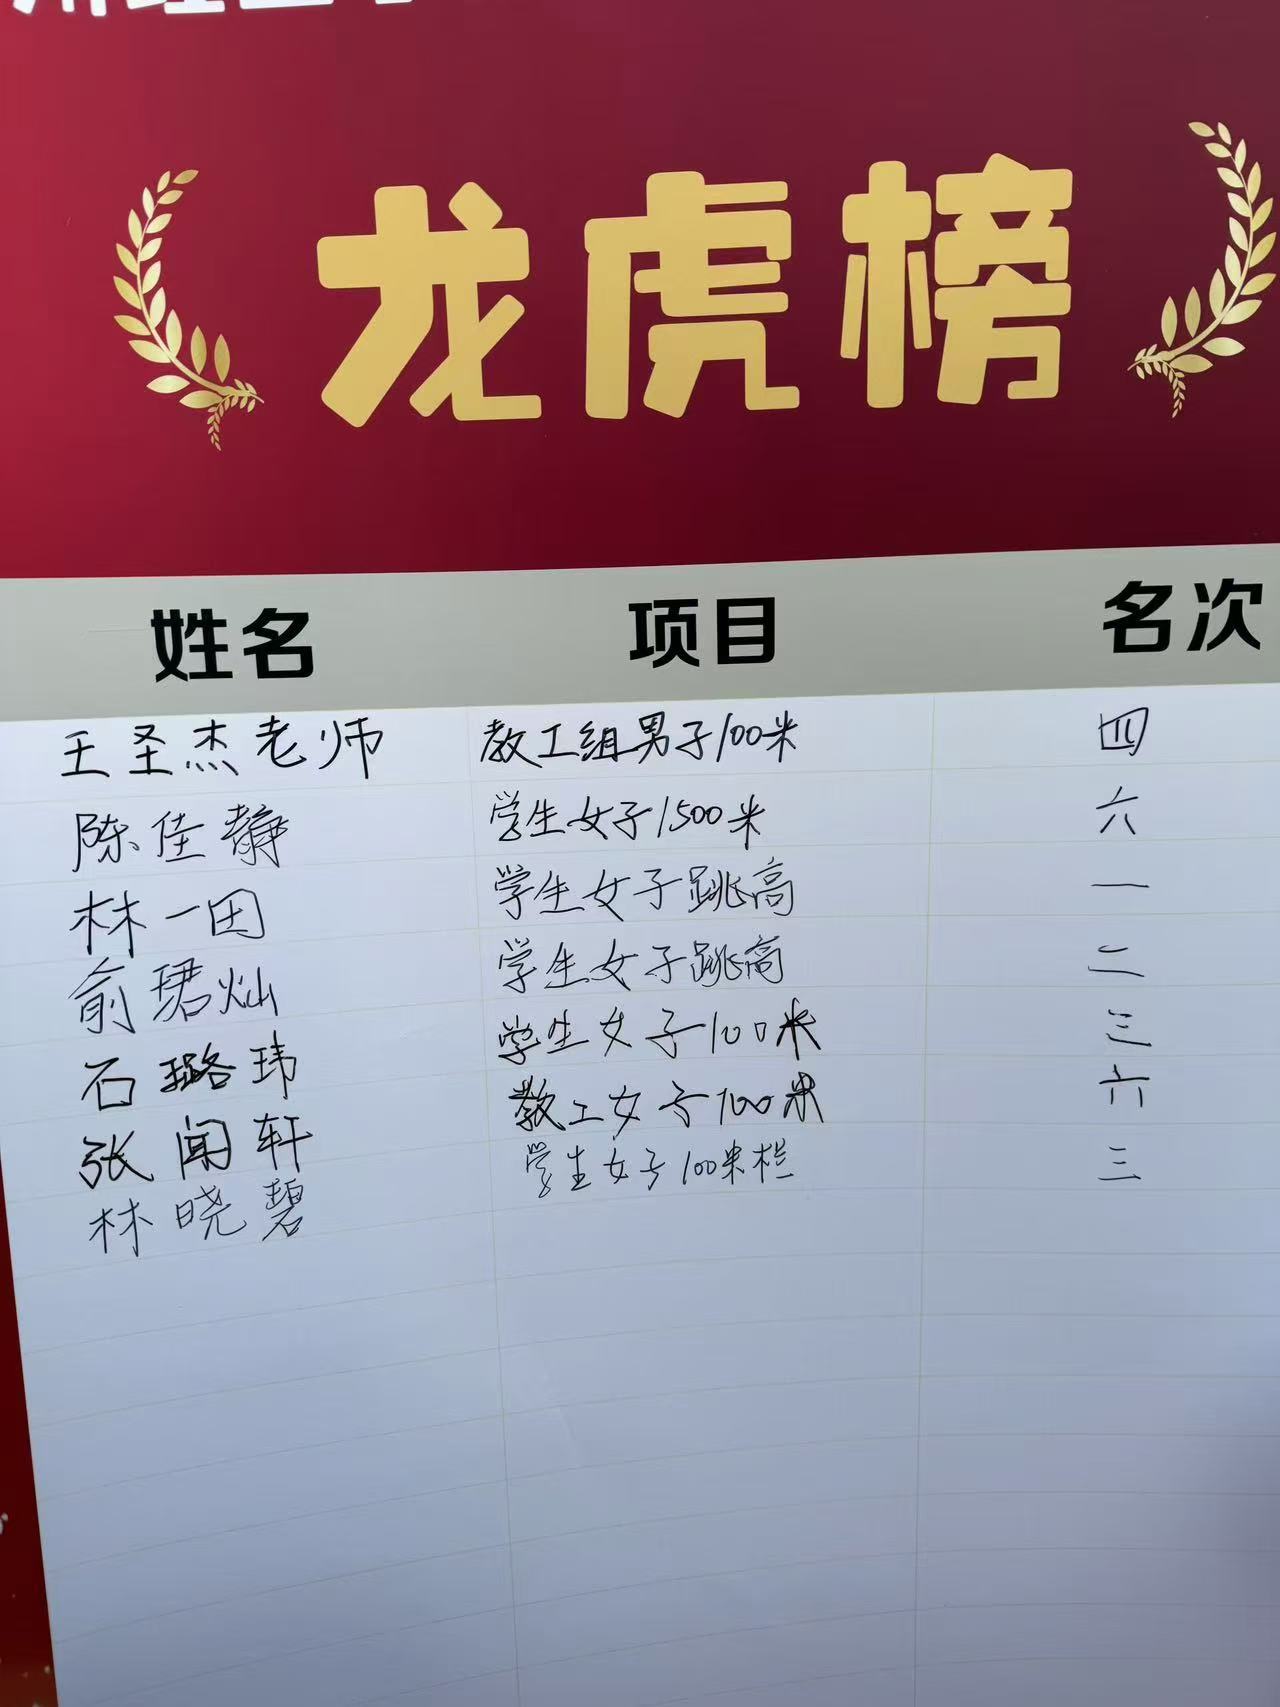 龙虎榜
姓名 项目 名次
王圣杰老师 教工组男子100米 四
陈佳静 学生女子1500米 六
林一因 学生女子跳高 一
俞珺灿 学生女子跳高 二
石璐玮 学生女子100米 三
张闻轩 教工女子100米 六
林晓碧 学生女子100米栏 三